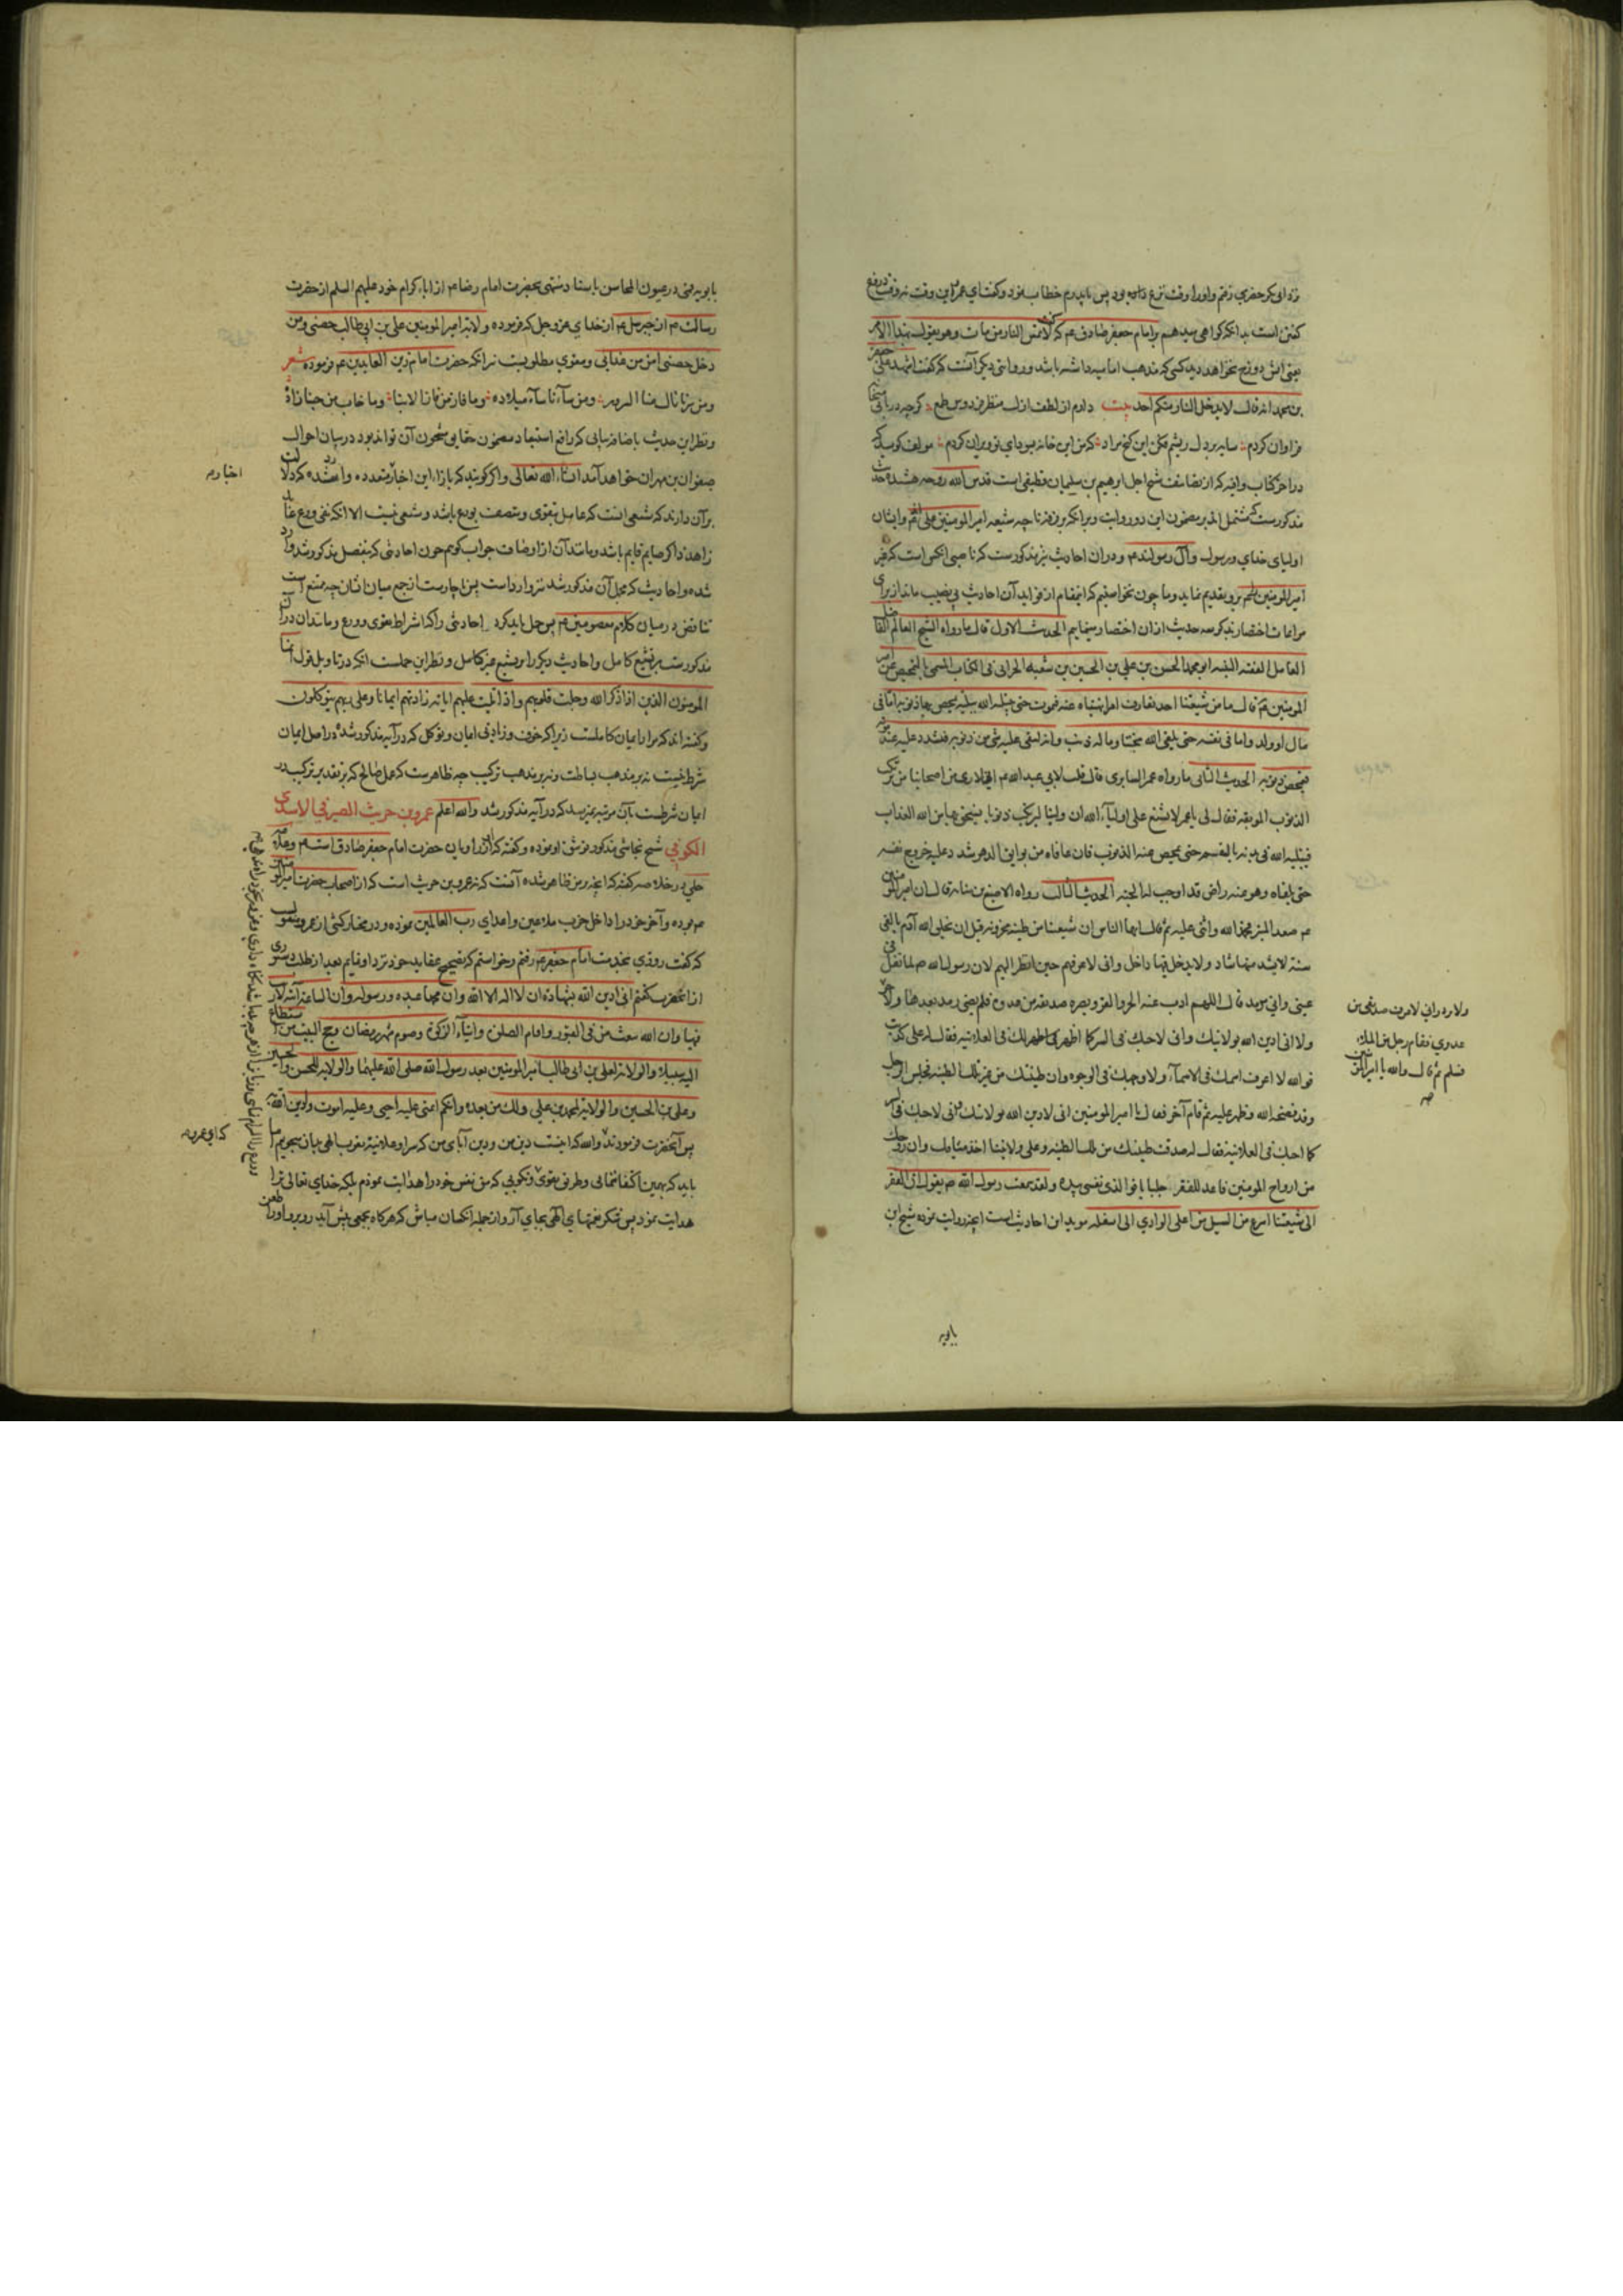 زد ابی بکر حضرمی رفتم و او را وقت نزع بود پس با پدرم خطاب نمود و گفت ای عمر این وقت نه وقت دروغ
گفتن است بدانکه گواهی میدهم بر امام جعفر صادق عم که لا تمس النار من مات و هو یقول بهذا الامر
یعنی آتش دوزخ نخواهد دید کسی که مذهب امامیه داشته باشد و روایتی دیگر آنست که گفت اشهد علی جعفر
بن محمد انه قال لا یدخل النار منکم احد بیت دارم از لطف ازل منظر فردوس طمع گرچه دربانی میخانه
فراوان کردم سایه بر دل ریشم فکن ای گنج مراد که من این خانه بسودای تو ویران کردم مؤلف گوید که
در آخر کتاب وافیه که از تصانیف شیخ اجل ابرهیم بن سلیمان قطیفی است قدس الله روحه هشده حدیث
مذکورست که مشتمل اند بر مضمون این دو روایت و بر آنکه بروز فزع ناجیه شیعه امیر المومنین علی اند و ایشان
اولیای خدای و رسول و آل رسولند عم و در آن احادیث نیز مذکورست که ناصبی آنکس است که غیر
امیر المومنین علی عم برو تقدیم نماید و ما چون نخواستیم که این مقام از فواید آن احادیث بی نصیب ماند از برای
مراعات اختصار بذکر سه حدیث از آن اختصار مینماییم الحدیث الاول قال ما رواه الشیخ العالم الفاضل
العامل الفقیه النبیه ابو محمد الحسن بن علی بن الحسین بن شعبه الحرانی فی الکتاب المسمی بالتمحیص عن امیر
المومنین عم قال ما من شیعتنا احد یقارف امرا نهیناه عنه فیموت حتی یبتلیه الله ببلیه یمحص بها ذنوبه اما فی
مال او ولد و اما فی نفسه حتی یلقی الله محبنا و ما له ذنب و انه لیبقی علیه شی من ذنوبه فیشدد علیه عند موته
فیمحص ذنوبه الحدیث الثانی ما رواه عمر السابری قال قلت لابی عبدالله عم انی لاری من اصحابنا من یرتکب
الذنوب الموبقه فقال لی یا عمر لا تشنع علی اولیاء الله ان ولینا لیرکب ذنوبا یستحق بها من الله العذاب
فیبتلیه الله فی بدنه بالسقم حتی یمحص عنه الذنوب فان عافاه من بوایق الدهر شدد علیه خروج نفسه
حتی یلقاه و هو عنه راض قد اوجب له الجنه الحدیث الثالث رواه الاصبغ بن نباته قال ان امیر المومنین
عم صعد المنبر فحمد الله و اثنی علیه ثم قال ایها الناس ان شیعتنا من طینه مخزونه قبل ان یخلق الله آدم بالفی
سنه لا یشذ منها شاذ و لا یدخل فیها داخل و انی لاعرفهم حین انظر الیهم لان رسول الله ص لما تفل فی
عینی و انی ارمد قال اللهم اذهب عنه الحر و القر و بصره صدیقه من عدوه فلم یصبنی رمد بعدها و لا حر
و لا انی ادین الله بولایتک و انی لاحبک فی السر کما اظهر لک فی العلانیه فقال له علی کذبت
فوالله لا اعرف اسمک فی الاسماء و لا وجهک فی الوجوه و ان طینتک من غیر تلک الطینه فجلس الرجل
و قد فضحه الله و اظهر علیه ثم قام آخر فقال یا امیر المومنین انی لادین الله بولایتک و انی لاحبک فی السر
کما احبک فی العلانیه فقال له صدقت طینتک من تلک الطینه و علی ولایتنا اخذ میثاقک و ان روحک
من ارواح المومنین فاعد للفقر جلبابا فوالذی نفسی بیده لقد سمعت رسول الله ص یقول ان الفقر
الی شیعتنا اسرع من السیل من اعلی الوادی الی اسفله مؤید این احادیث است آنچه روایت نموده شیخ ابن
بابویه
ولا برد و انی لاعرف صدیقی من
عدوی فقام رجل من الملاء
فسلم ثم قال والله یا امیر المومنین
صه
بابویه قمی در عیون المحاسن باسناد منتهی بحضرت امام رضا عم از آباء کرام خود علیهم السلم از حضرت
رسالت ص از جبرئیل عم از خدای عز و جل که فرموده ولایة امیر المومنین علی بن ابی طالب حصنی و من
دخل حصنی امن من عذابی و مقوی مطلوبست نیز آنکه حضرت امام زین العابدین عم فرموده شعر
و من سرنا نال منا السرور و من ساءنا ساء میلاده و ما فاز من فاز الا بنا و ما خاب من حبنا زاده
و نظر این حدیث باضافه بیانی که رافع استبعاد مضمون حقایق مشحون آن تواند بود در بیان احوال
صفوان بن مهران خواهد آمد ان شاء الله تعالی و اگر گویند که بازاء این اخبار متعدده وارد شده که دلالت
بر آن دارند که شیعی آنست که عامل بتقوی و متصف بورع باشد و شیعی نیست الا آنکه تقی و ورع عابد
زاهد ذاکر صایم قایم باشد و مانند آن از اوصاف جواب گویم چون احادیثی که بتفصیل مذکور شد وارد
شده و احادیث که مجمل آن مذکور شد نیز وارد است پس ناچارست از جمع میان ایشان چه ممتنع است
تناقض در میان کلام معصومین عم پس حمل باید کرد احادیثی را که اشتراط تقوی و ورع و مانند آن در آن
مذکورست بر تشیع کامل و احادیث دیگر را بر تشیع غیر کامل و نظر این حملست آنکه در تاویل قول انما
المومنون الذین اذا ذکر الله وجلت قلوبهم و اذا تلیت علیهم آیاته زادتهم ایمانا و علی ربهم یتوکلون
گفته اند که مراد ایمان کاملست زیرا که خوف و زیادتی ایمان و توکل که در آیه مذکور شده در اصل ایمان
شرط نیست نه بر مذهب بساطت و نه بر مذهب ترکیب چه ظاهرست که عمل صالح که بر تقدیر ترکیب در
ایمان شرطست بآن مرتبه نمیرسد که در آیه مذکور شد والله اعلم عمرو بن حریث الصیرفی الاسدی
الکوفی شیخ نجاشی مذکور توثیق او نموده و گفته که از راویان حضرت امام جعفر صادق است عم و علامه
حلی در خلاصه گفته که آنچه بر من ظاهر شده آنست که نه عمرو بن حریث است که از اصحاب حضرت امیر المومنین
عم بوده و آخر خود را داخل حزب ملاعین و اعدای رب العالمین نموده و در مختار کشی از عمرو منقول
که گفت روزی بخدمت امام جعفر عم رفتم و خواستم که تصحیح عقاید خود نزد او نمایم بعد از طلب دستوری
از آنحضرت گفتم انی ادین الله بشهادة ان لا اله الا الله و ان محمدا عبده و رسوله و ان الساعة آتیة لا ریب
فیها و ان الله یبعث من فی القبور و اقام الصلوة و ایتاء الزکوة و صوم شهر رمضان و حج البیت من استطاع
الیه سبیلا و الولایة لعلی بن ابی طالب امیر المومنین بعد رسول الله صلی الله علیهما و الولایة للحسن و الحسین
و علی بن الحسین و الولایة لمحمد بن علی و لک من بعده و انکم ائمتی علیه احیی و علیه اموت و ادین الله به
پس آنحضرت فرمودند والله که اینست دین من و دین آبای من که سرا و علانیة تقرب الهی بآن میجوییم اما
باید که بهمین اکتفا ننمایی و طریق تقوی و نکویی که من نفس خود را هدایت نمودم بلکه خدای تعالی ترا
هدایت نمود پس شکر نعمتهای الهی بجای آر و از جمله آنکسان مباش که هرگاه بجمعی پیش آید رو برو او را طعن
اخبار